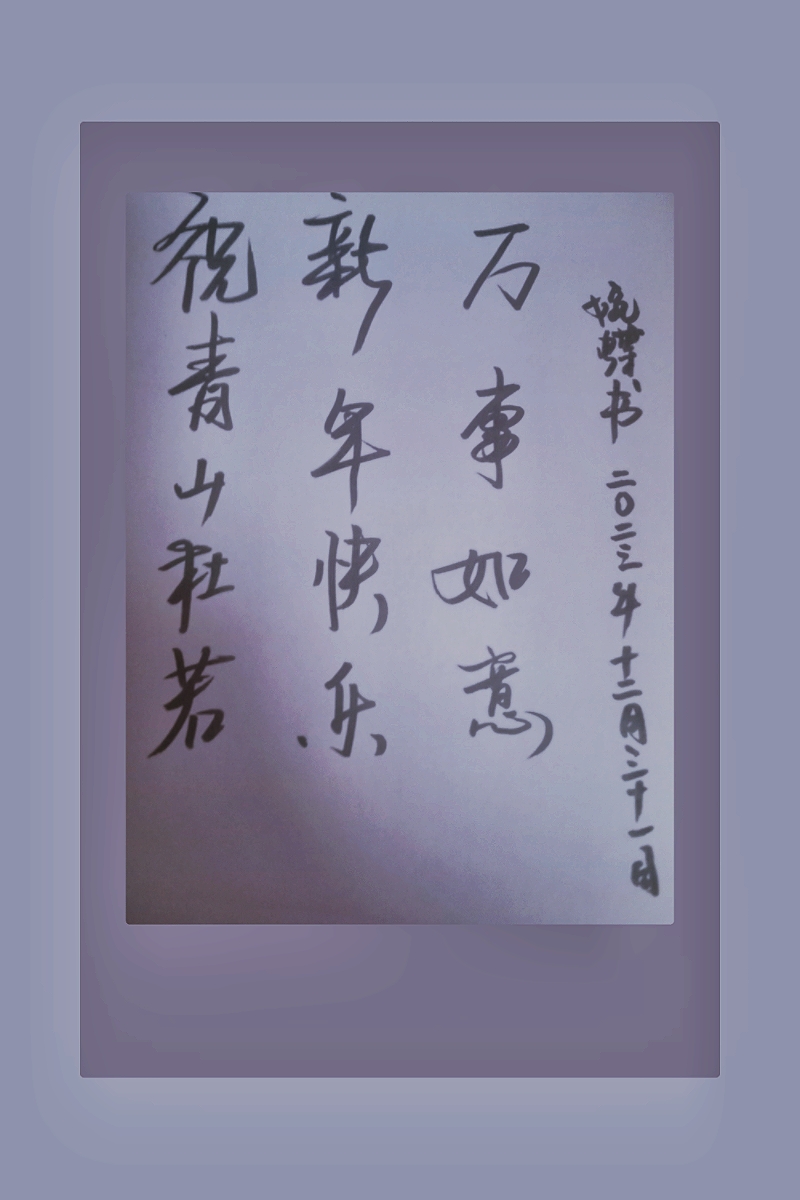 祝青山杜若
新年快乐
万事如意
蝶书 二〇二三年十二月三十一日